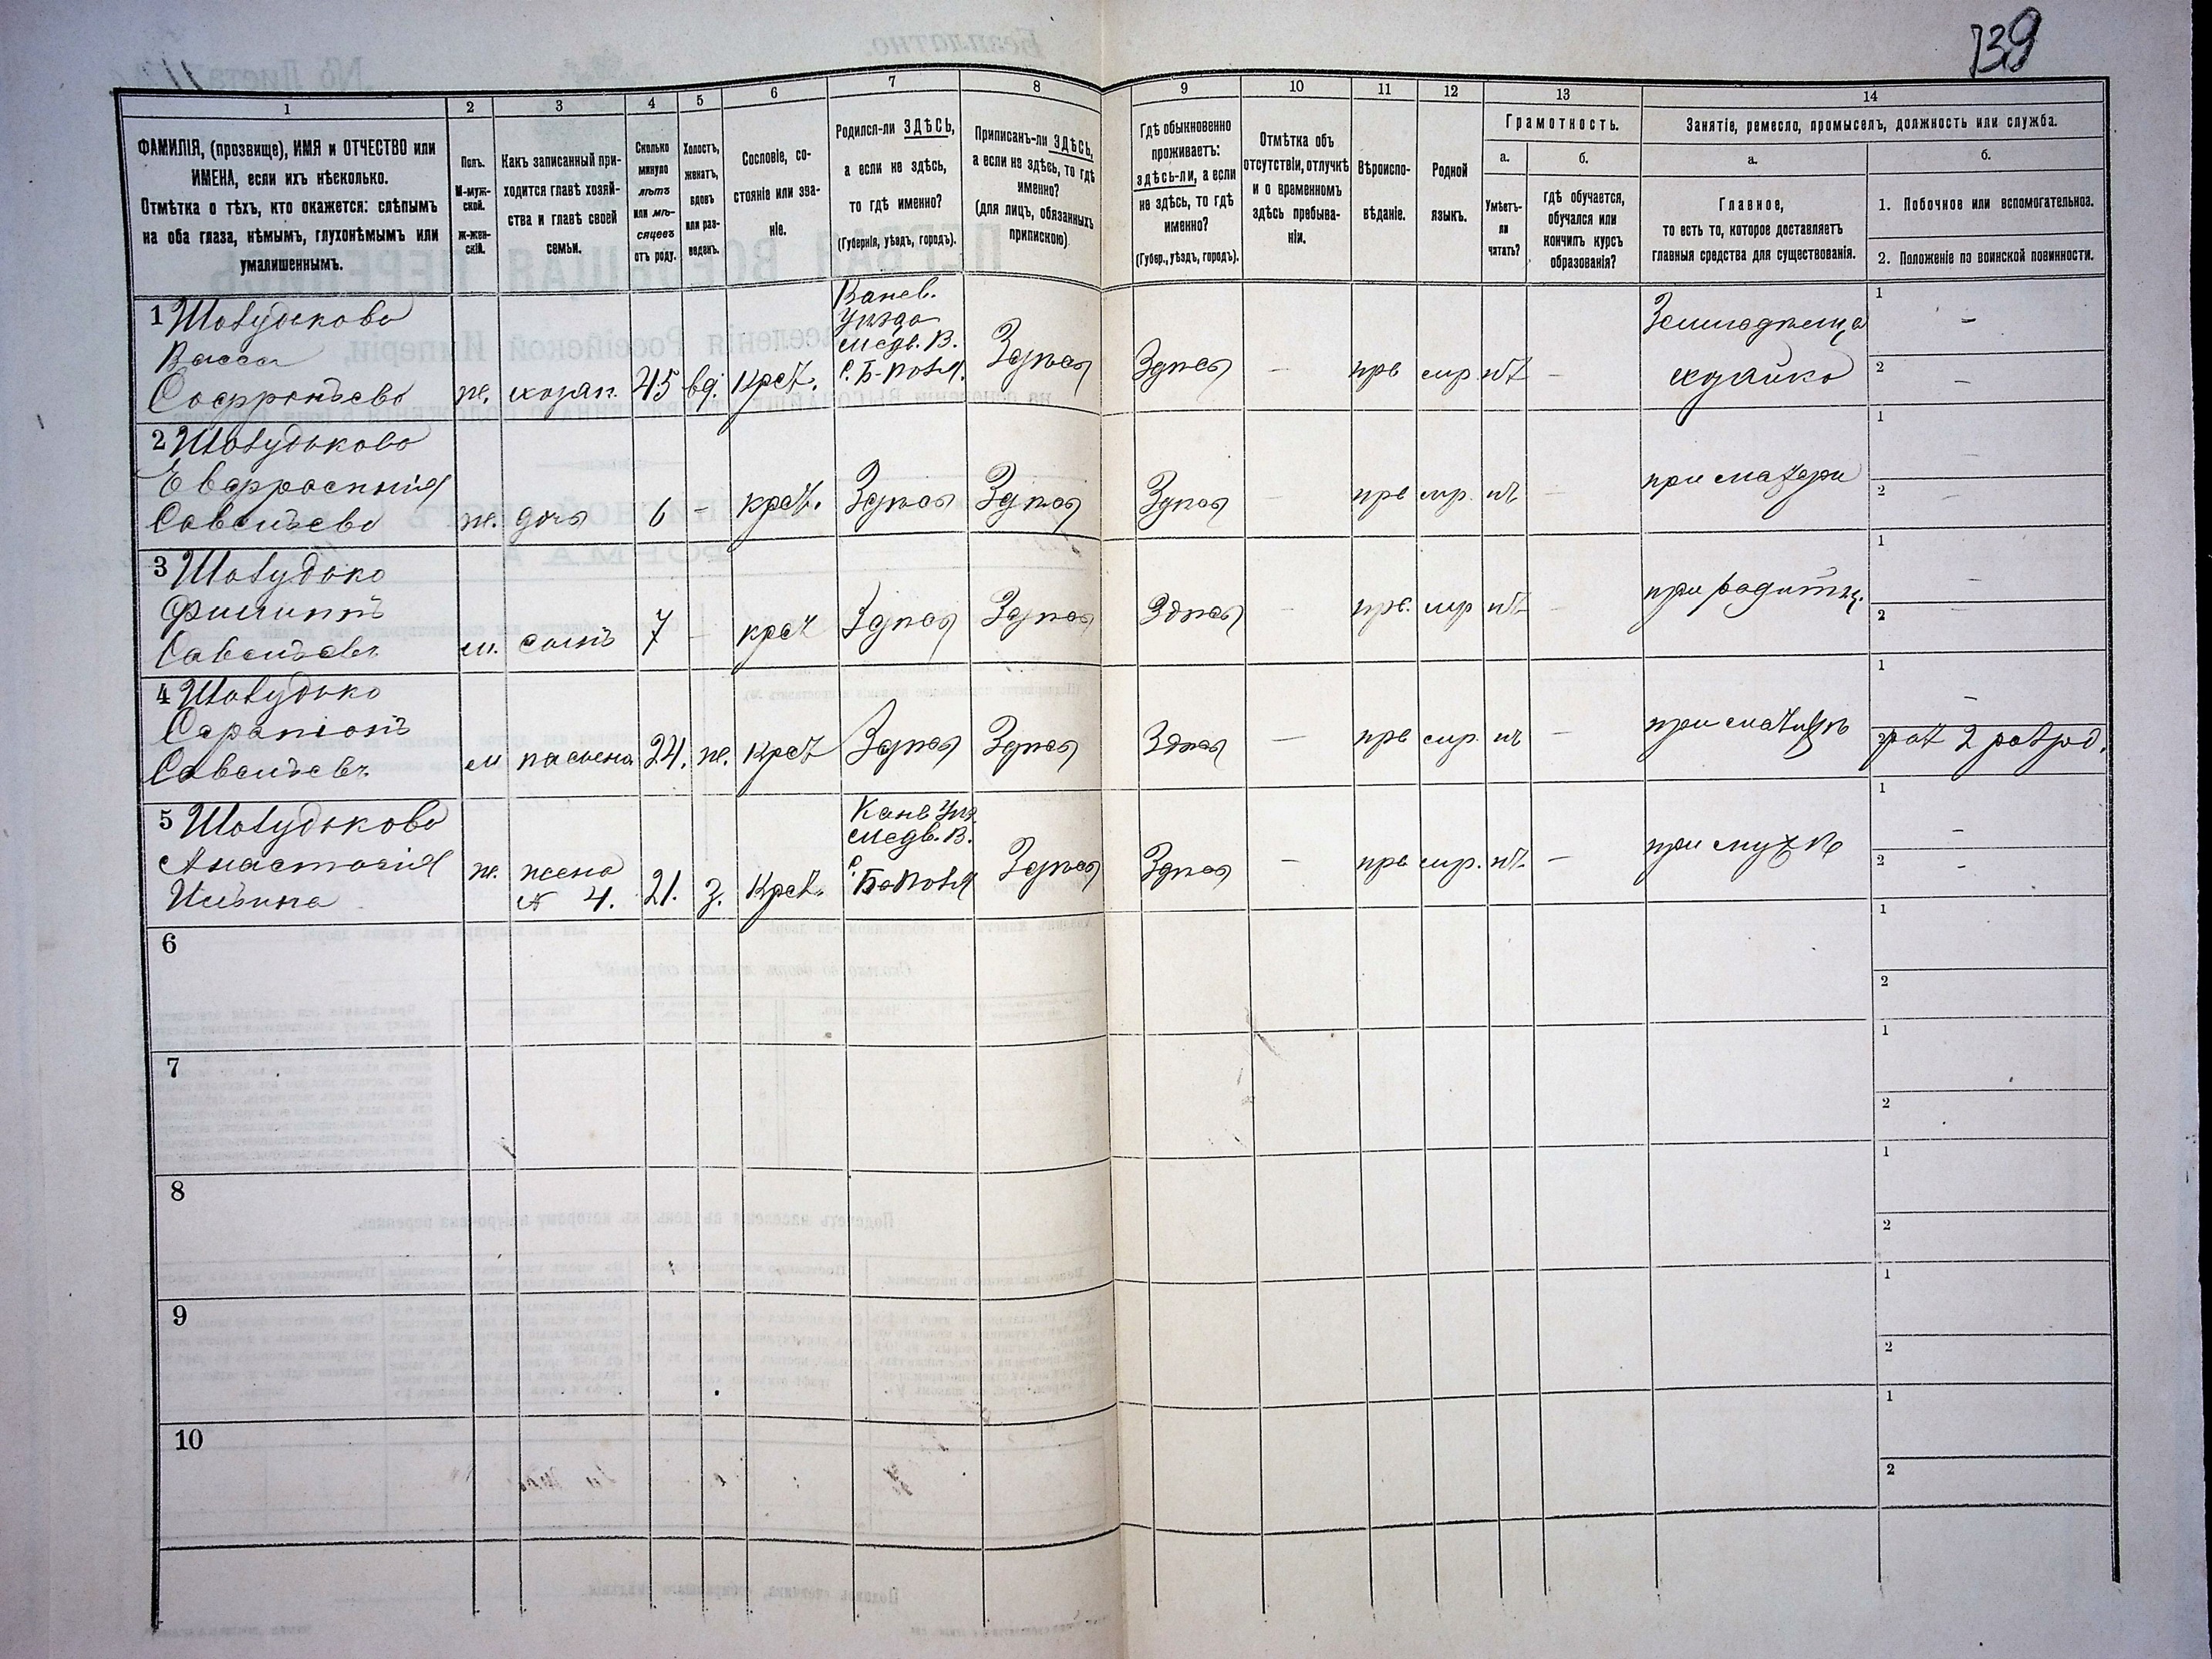 139
1
2
3
4
5
6
7
8
9
10
11
12
13
14
ФАМИЛІЯ, (прозвище), ИМЯ и ОТЧЕСТВО или
ИМЕНА, если ихъ нѣсколько.
Отмѣтка о тѣхъ, кто окажется: слѣпымъ
на оба глаза, нѣмымъ, глухонѣмымъ или
умалишеннымъ.
Полъ.
М-муж-
ской.
ж-жен-
скій.
Какъ записанный при-
ходится главѣ хозяй-
ства и главѣ своей
семьи.
Сколько
минуло
лѣтъ
или мѣ-
сяцевъ
отъ роду.
Холостъ,
женатъ,
вдовъ
или раз-
веденъ.
Сословіе, со-
стояніе или зва-
ніе.
Родился-ли ЗДѢСЬ,
а если не здѣсь,
то гдѣ именно?
(Губернія, уѣздъ, городъ).
Приписанъ-ли ЗДѢСЬ,
а если не здѣсь, то гдѣ
именно?
(для лицъ, обязанныхъ
припискою)
Гдѣ обыкновенно
проживаетъ:
здѣсь-ли, а если
не здѣсь, то гдѣ
именно?
(Губер., уѣздъ, городъ).
Отмѣтка объ
отсутствіи, отлучкѣ
и о временномъ
здѣсь пребыва-
ніи.
Вѣроиспо-
вѣданіе.
Родной
языкъ.
Грамотность.
а.
Умѣетъ-
ли
читать?
б.
гдѣ обучается,
обучался или
кончилъ курсъ
образованія?
Занятіе, ремесло, промыселъ, должность или служба.
а.
Главное,
то есть то, которое доставляетъ
главныя средства для существованія.
б.
1. Побочное или вспомогательноа.
2. Положеніе по воинской повинности.
1
Васса
Софроньева
ж. хозяй. 45 вд. Крест.
Канев.
Уѣзда
медв. В.
Здѣсь Здѣсь — прв мр нѣт —
хозяйка
1 –
2 –
2
Евфросинія
Савельева
ж. дочь 6 - крест. Здѣсь Здѣсь Здѣсь — прв мр. нѣ —
при матери
1 –
2 –
3
Филиппъ
Савельевъ
м. сынъ 7 – крест Здѣсь Здѣсь Здѣсь — прв. мр нѣт —
1 –
2 –
4
Сарапіонъ
Савельевъ
м 24. ж. Крест Здѣсь Здѣсь Здѣсь — прв мр. нѣ —
1 –
2
5
Анастасія
Ильина
ж. жена
№ 4. 21. з. Крест.
Канв Уѣз.
медв. В.
Здѣсь Здѣсь — прв мр. нѣт. —
при мужѣ
1 –
2 –
6
1
2
7
1
2
8
1
2
9
1
2
10
1
2